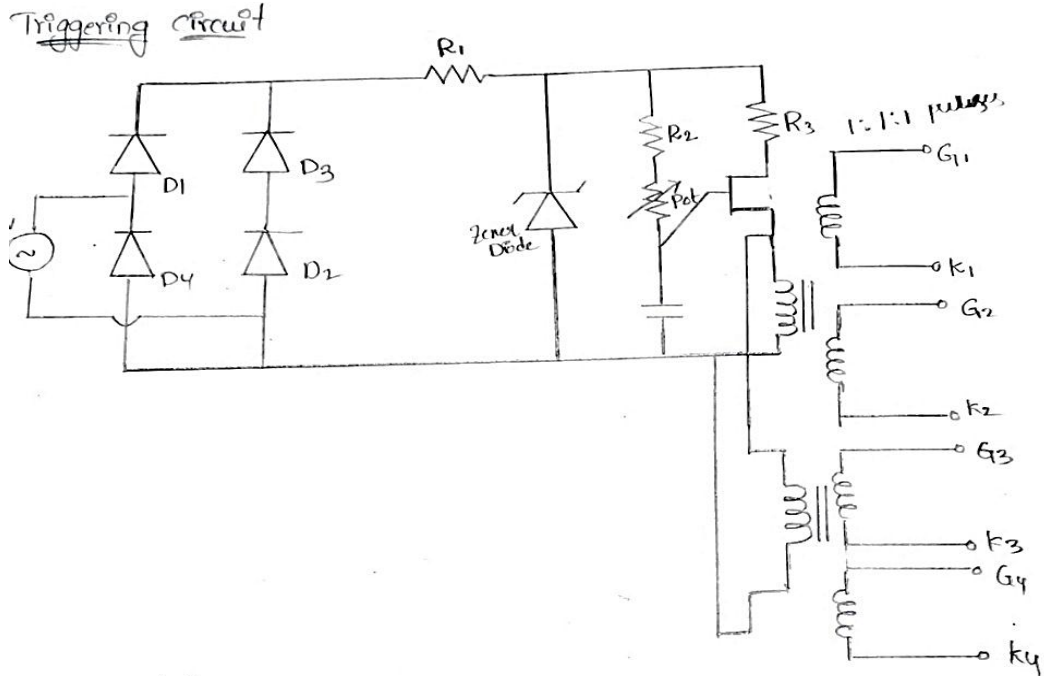 Triggering circuit
R1
D1
D3
D4
D2
~
Zener
Diode
R2
Pot
R3
1:1:1
G1
K1
G2
K2
G3
K3
G4
K4